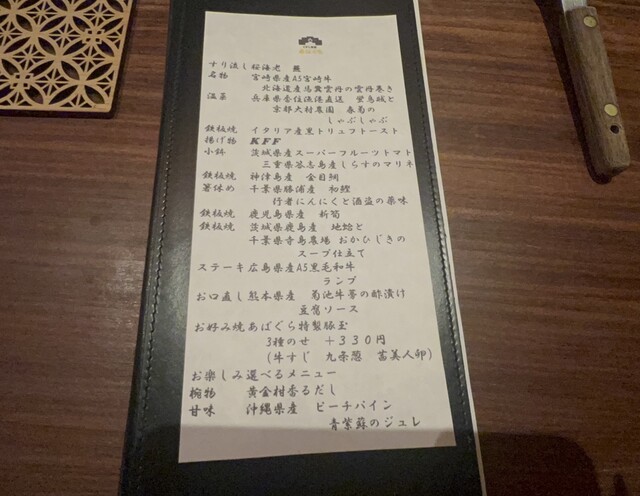 すり流し 桜海老 蕪
名物 宮崎県産A5宮崎牛
北海道産馬糞雲丹の雲丹巻き
温菜 兵庫県香住漁港直送 蛍烏賊と
京都大村農園 春菊の
しゃぶしゃぶ
鉄板焼 イタリア産黒トリュフトースト
揚げ物 KFF
小鉢 茨城県産スーパーフルーツトマト
三重県答志島産しらすのマリネ
鉄板焼 神津島産 金目鯛
箸休め 千葉県勝浦産 初鰹
行者にんにくと酒盗の薬味
鉄板焼 鹿児島県産 新筍
鉄板焼 茨城県鹿島産 地蛤と
千葉県寺島農場 おかひじきの
スープ仕立て
ステーキ 広島県産A5黒毛和牛
ランプ
お口直し 熊本県産 菊池牛蒡の酢漬け
豆腐ソース
お好み焼 あばぐら特製豚玉
3種のせ +330円
(牛すじ 九条葱 茜美人卵)
お楽しみ 選べるメニュー
椀物 黄金柑香るだし
甘味 沖縄県産 ピーチパイン
青紫蘇のジュレ